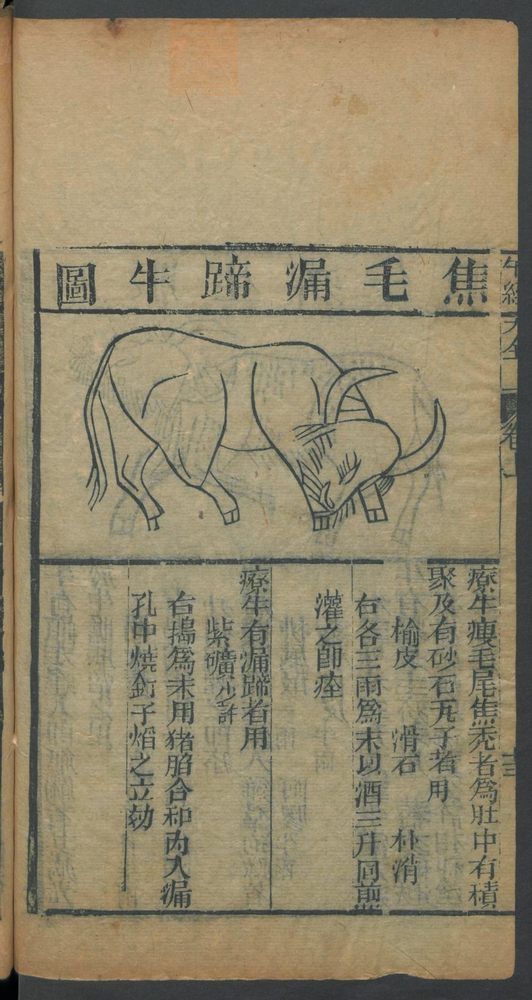 焦毛漏蹄牛圖
牛經大全
卷上
療牛瘦毛尾焦禿者為肚中有積
聚及有砂石瓦子者用
榆皮 滑石 朴消
右各三兩為末以酒三升同前
灌之卽痊
療牛有漏蹄者用
紫礦少許
右搗為末用猪脂合和內入漏
孔中燒釘子烙之立効